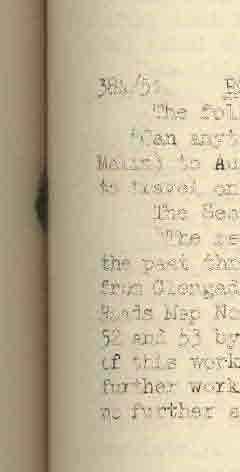 384/51 R
The foll
"Can anyt
Malin) to Au
to travel on
The Sec
"The re
the past thr
from Glengad
Roads Map No
52 and 53 by
of this work
further work
no further a